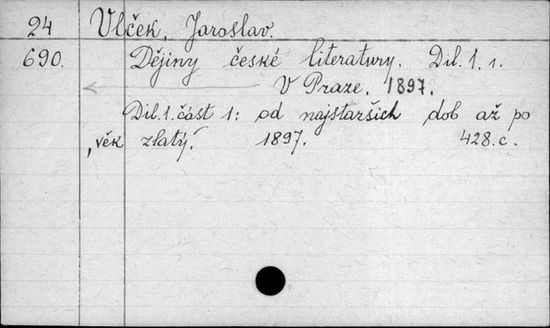 24 Vlček, Jaroslav.
690. Dějiny české literatury. Dil. 1. 1.
V Praze. 1897.
Dil. 1. část 1: od najstaršich dob až po
„věk zlatý." 1897. 428. c.